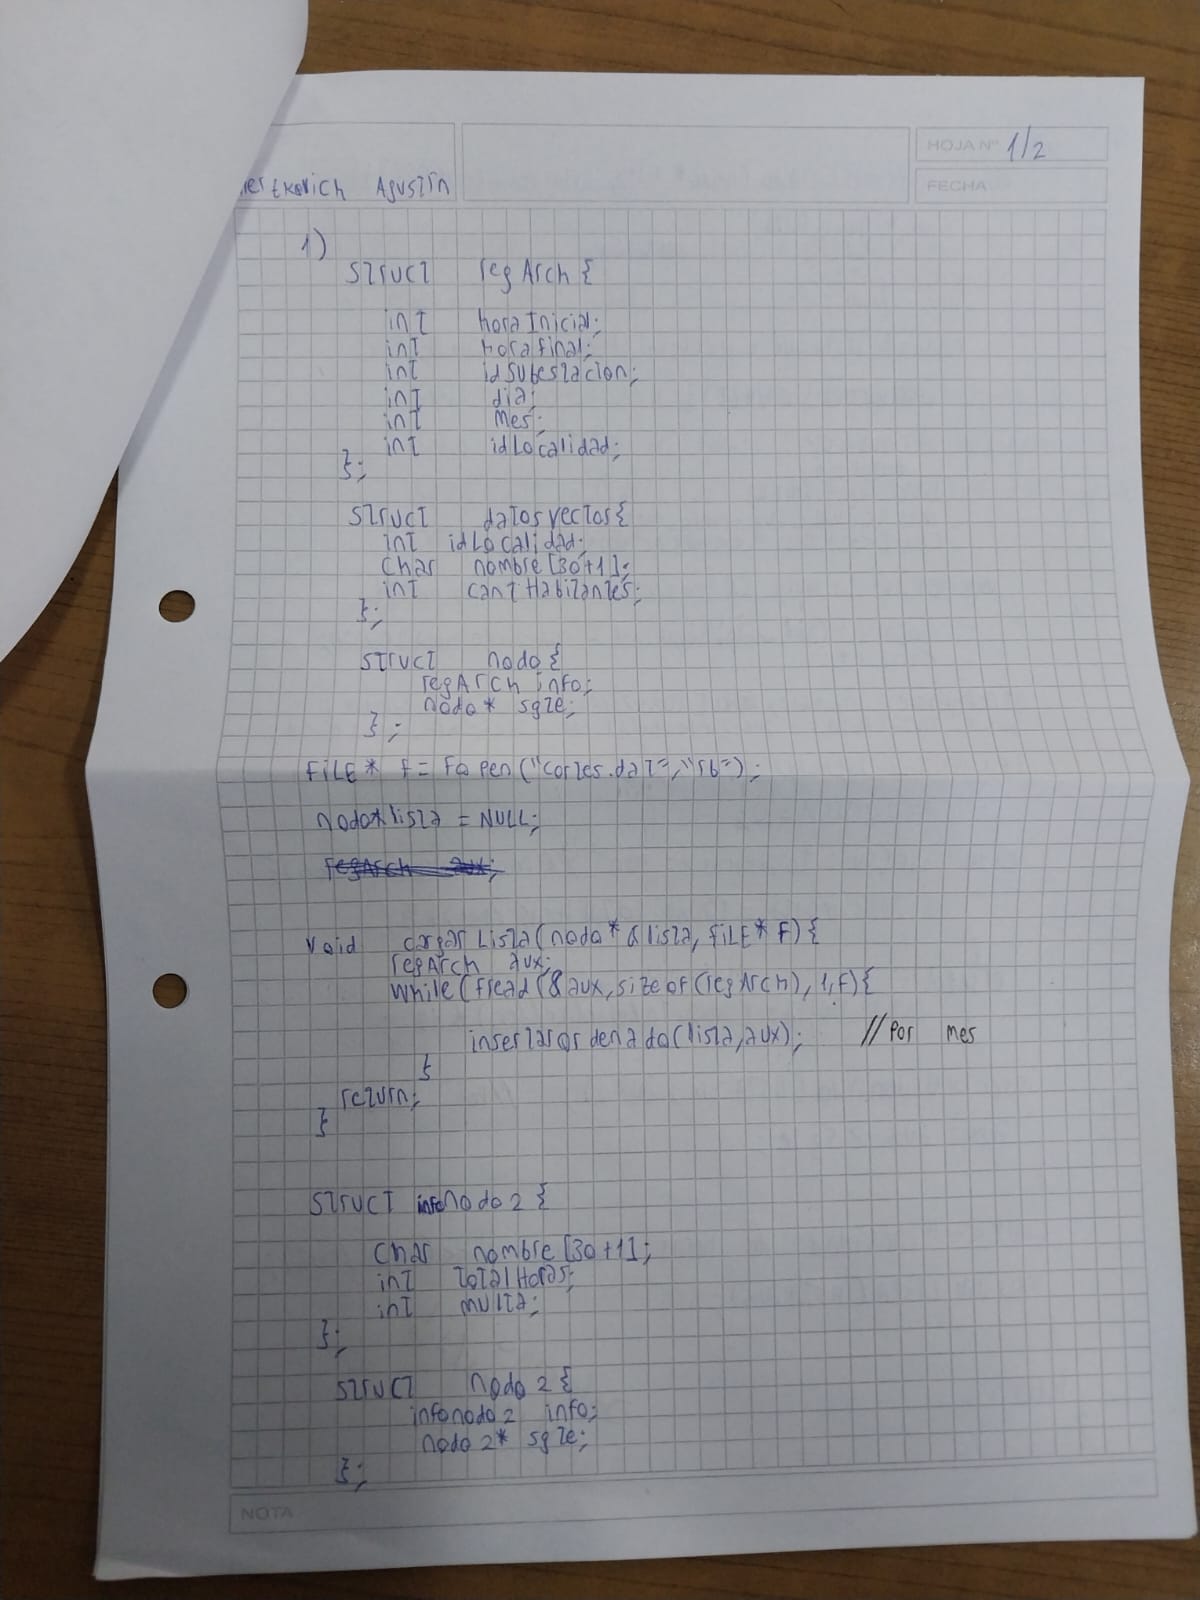 HOJA Nº 1/2
FECHA
Agustín
1)
struct regArch {
int horaInicial;
int horafinal;
int idSubestacion;
int dia;
int mes;
int idLocalidad;
};
struct datosvector{
int idLocalidad;
char nombre [30+1];
int cantHabitantes;
};
struct nodo {
regArch info;
nodo* sgte;
};
FILE * f = fopen ("cortes.dat", "rb");
nodo*lista = NULL;
regArch aux;
void cargarLista (nodo* & lista, FILE * f) {
regArch aux;
while (fread (& aux, sizeof (regArch), 1, f) {
insertarordenado (lista, aux); // Por mes
}
return;
}
struct infonodo2 {
char nombre [30+1];
int totalHoras;
int multa;
};
struct nodo 2 {
infonodo2 info;
nodo 2* sgte;
};
NOTA